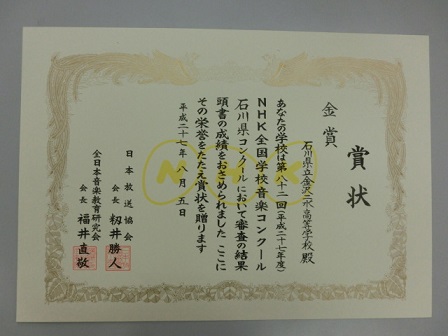 賞状
金賞
石川県立金沢二水高等学校 殿
あなたの学校は第八十二回(平成二十七年度)
NHK全国学校音楽コンクール
石川県コンクールにおいて審査の結果
頭書の成績をおさめられました ここに
その栄誉をたたえ賞状を贈ります
平成二十七年 八月 五日
日本放送協会
会長 籾井勝人
全日本音楽教育研究会
会長 福井直敬
NHK